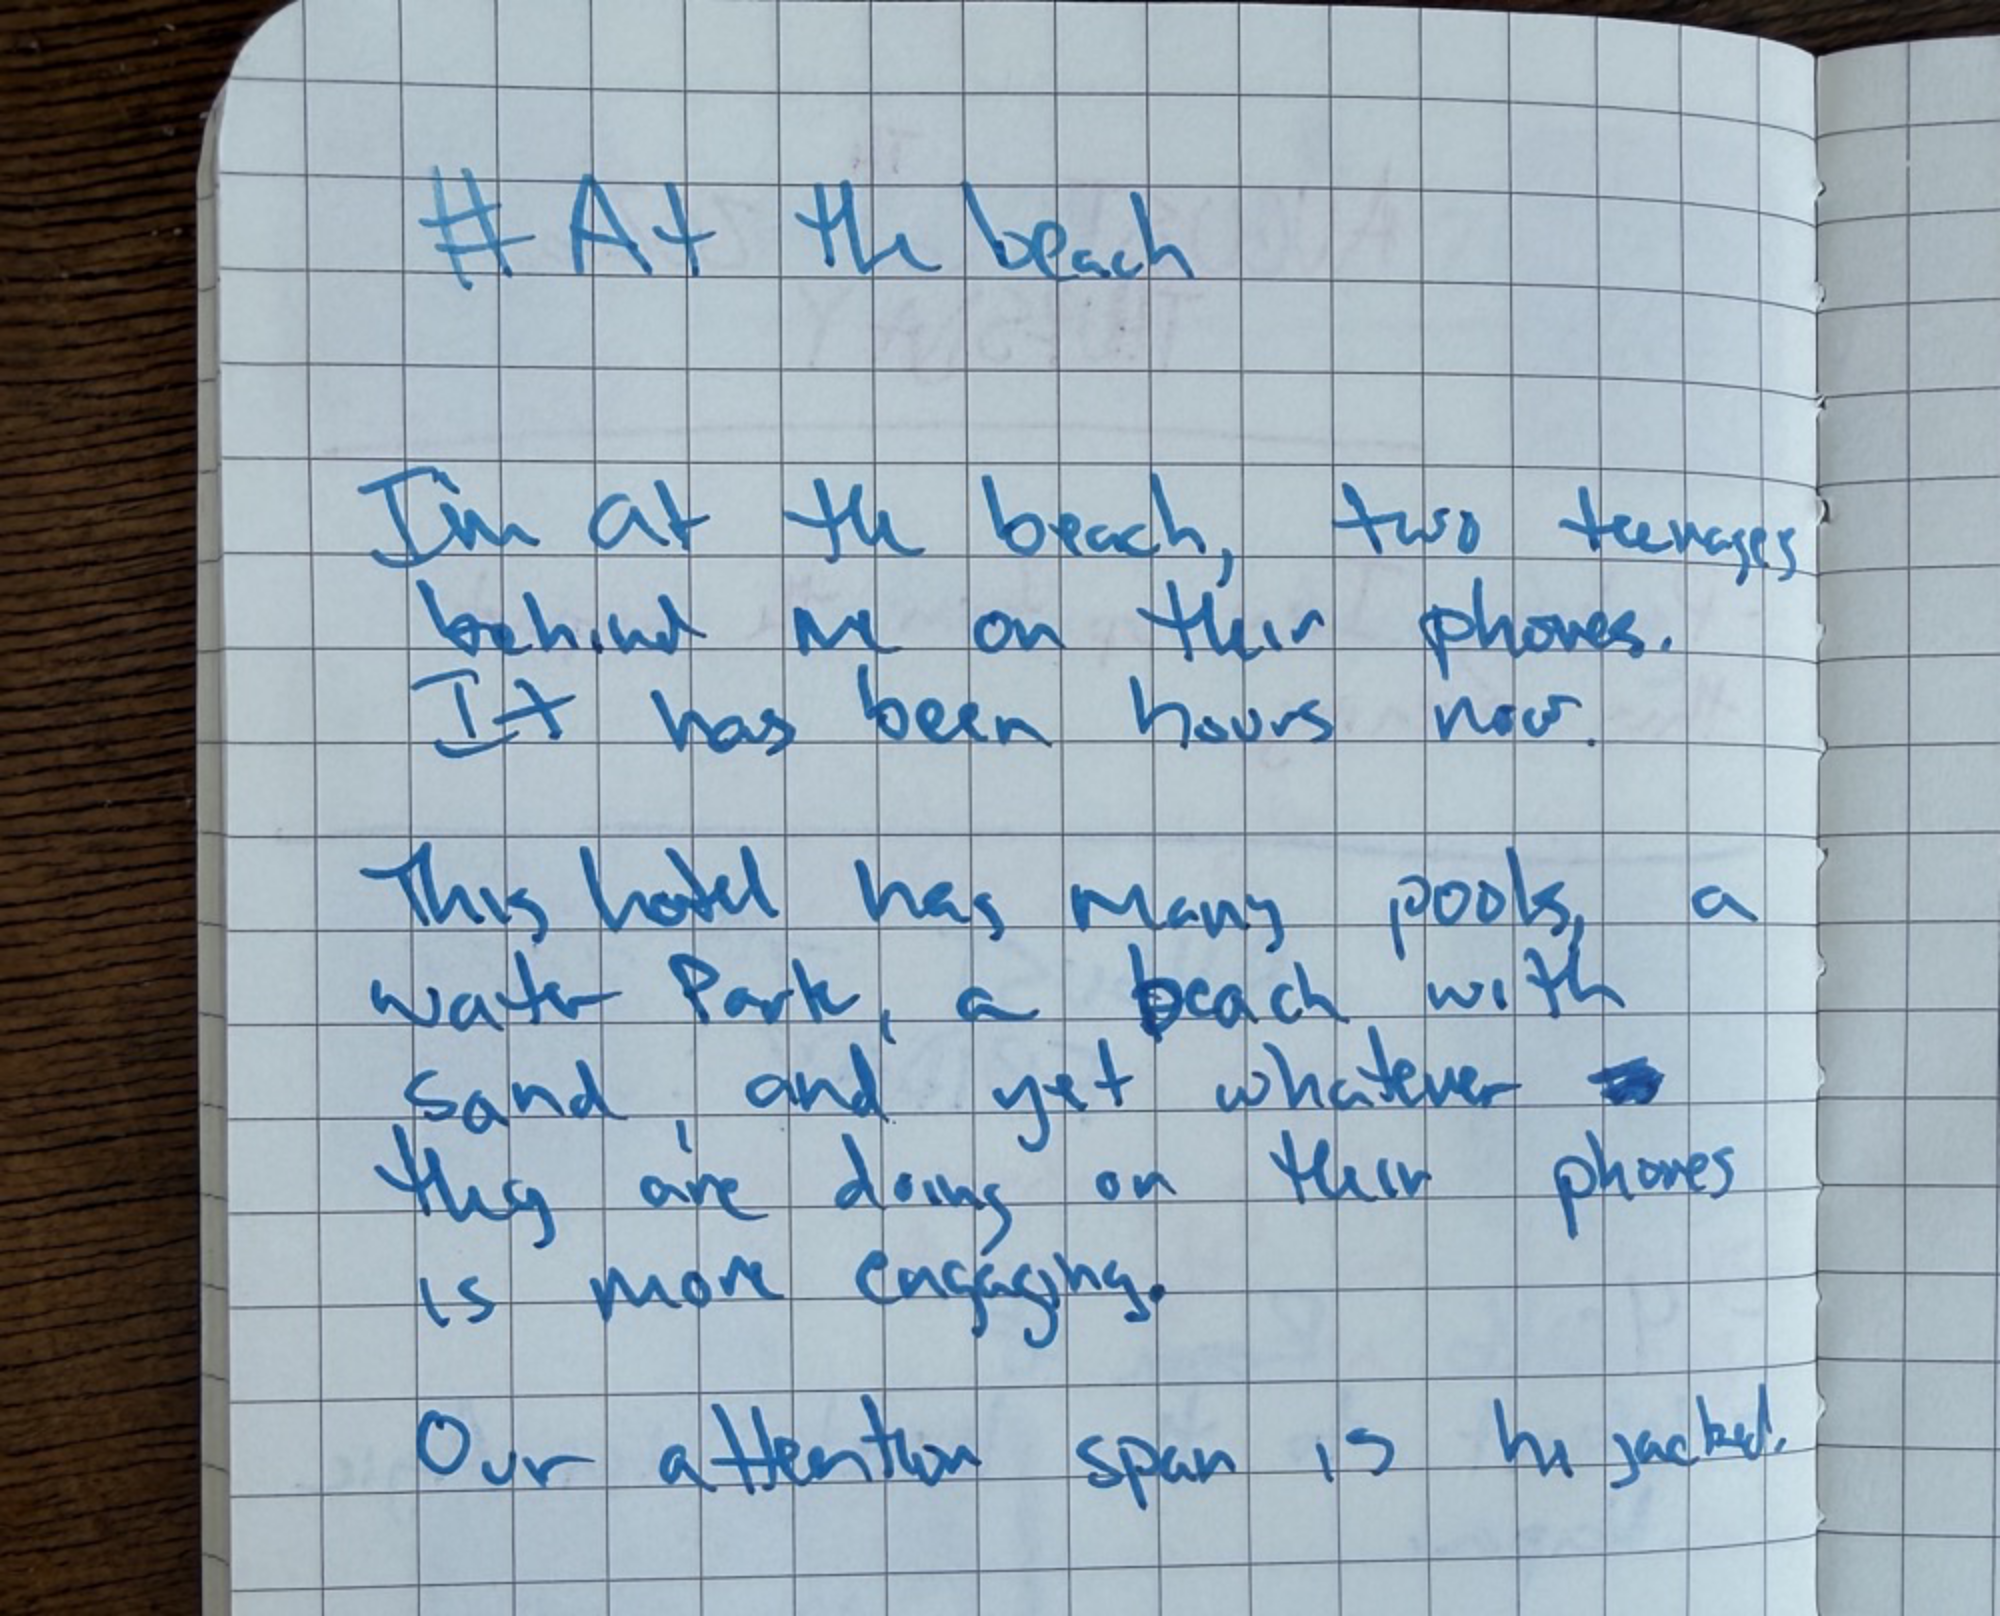 # At the beach
I'm at the beach, two teenages
behind me on their phones.
It has been hours now.
This hotel has many pools, a
water Park, a beach with
sand, and yet whatever
they are doing on their phones
is more engaging.
Our attention span is hijacked.